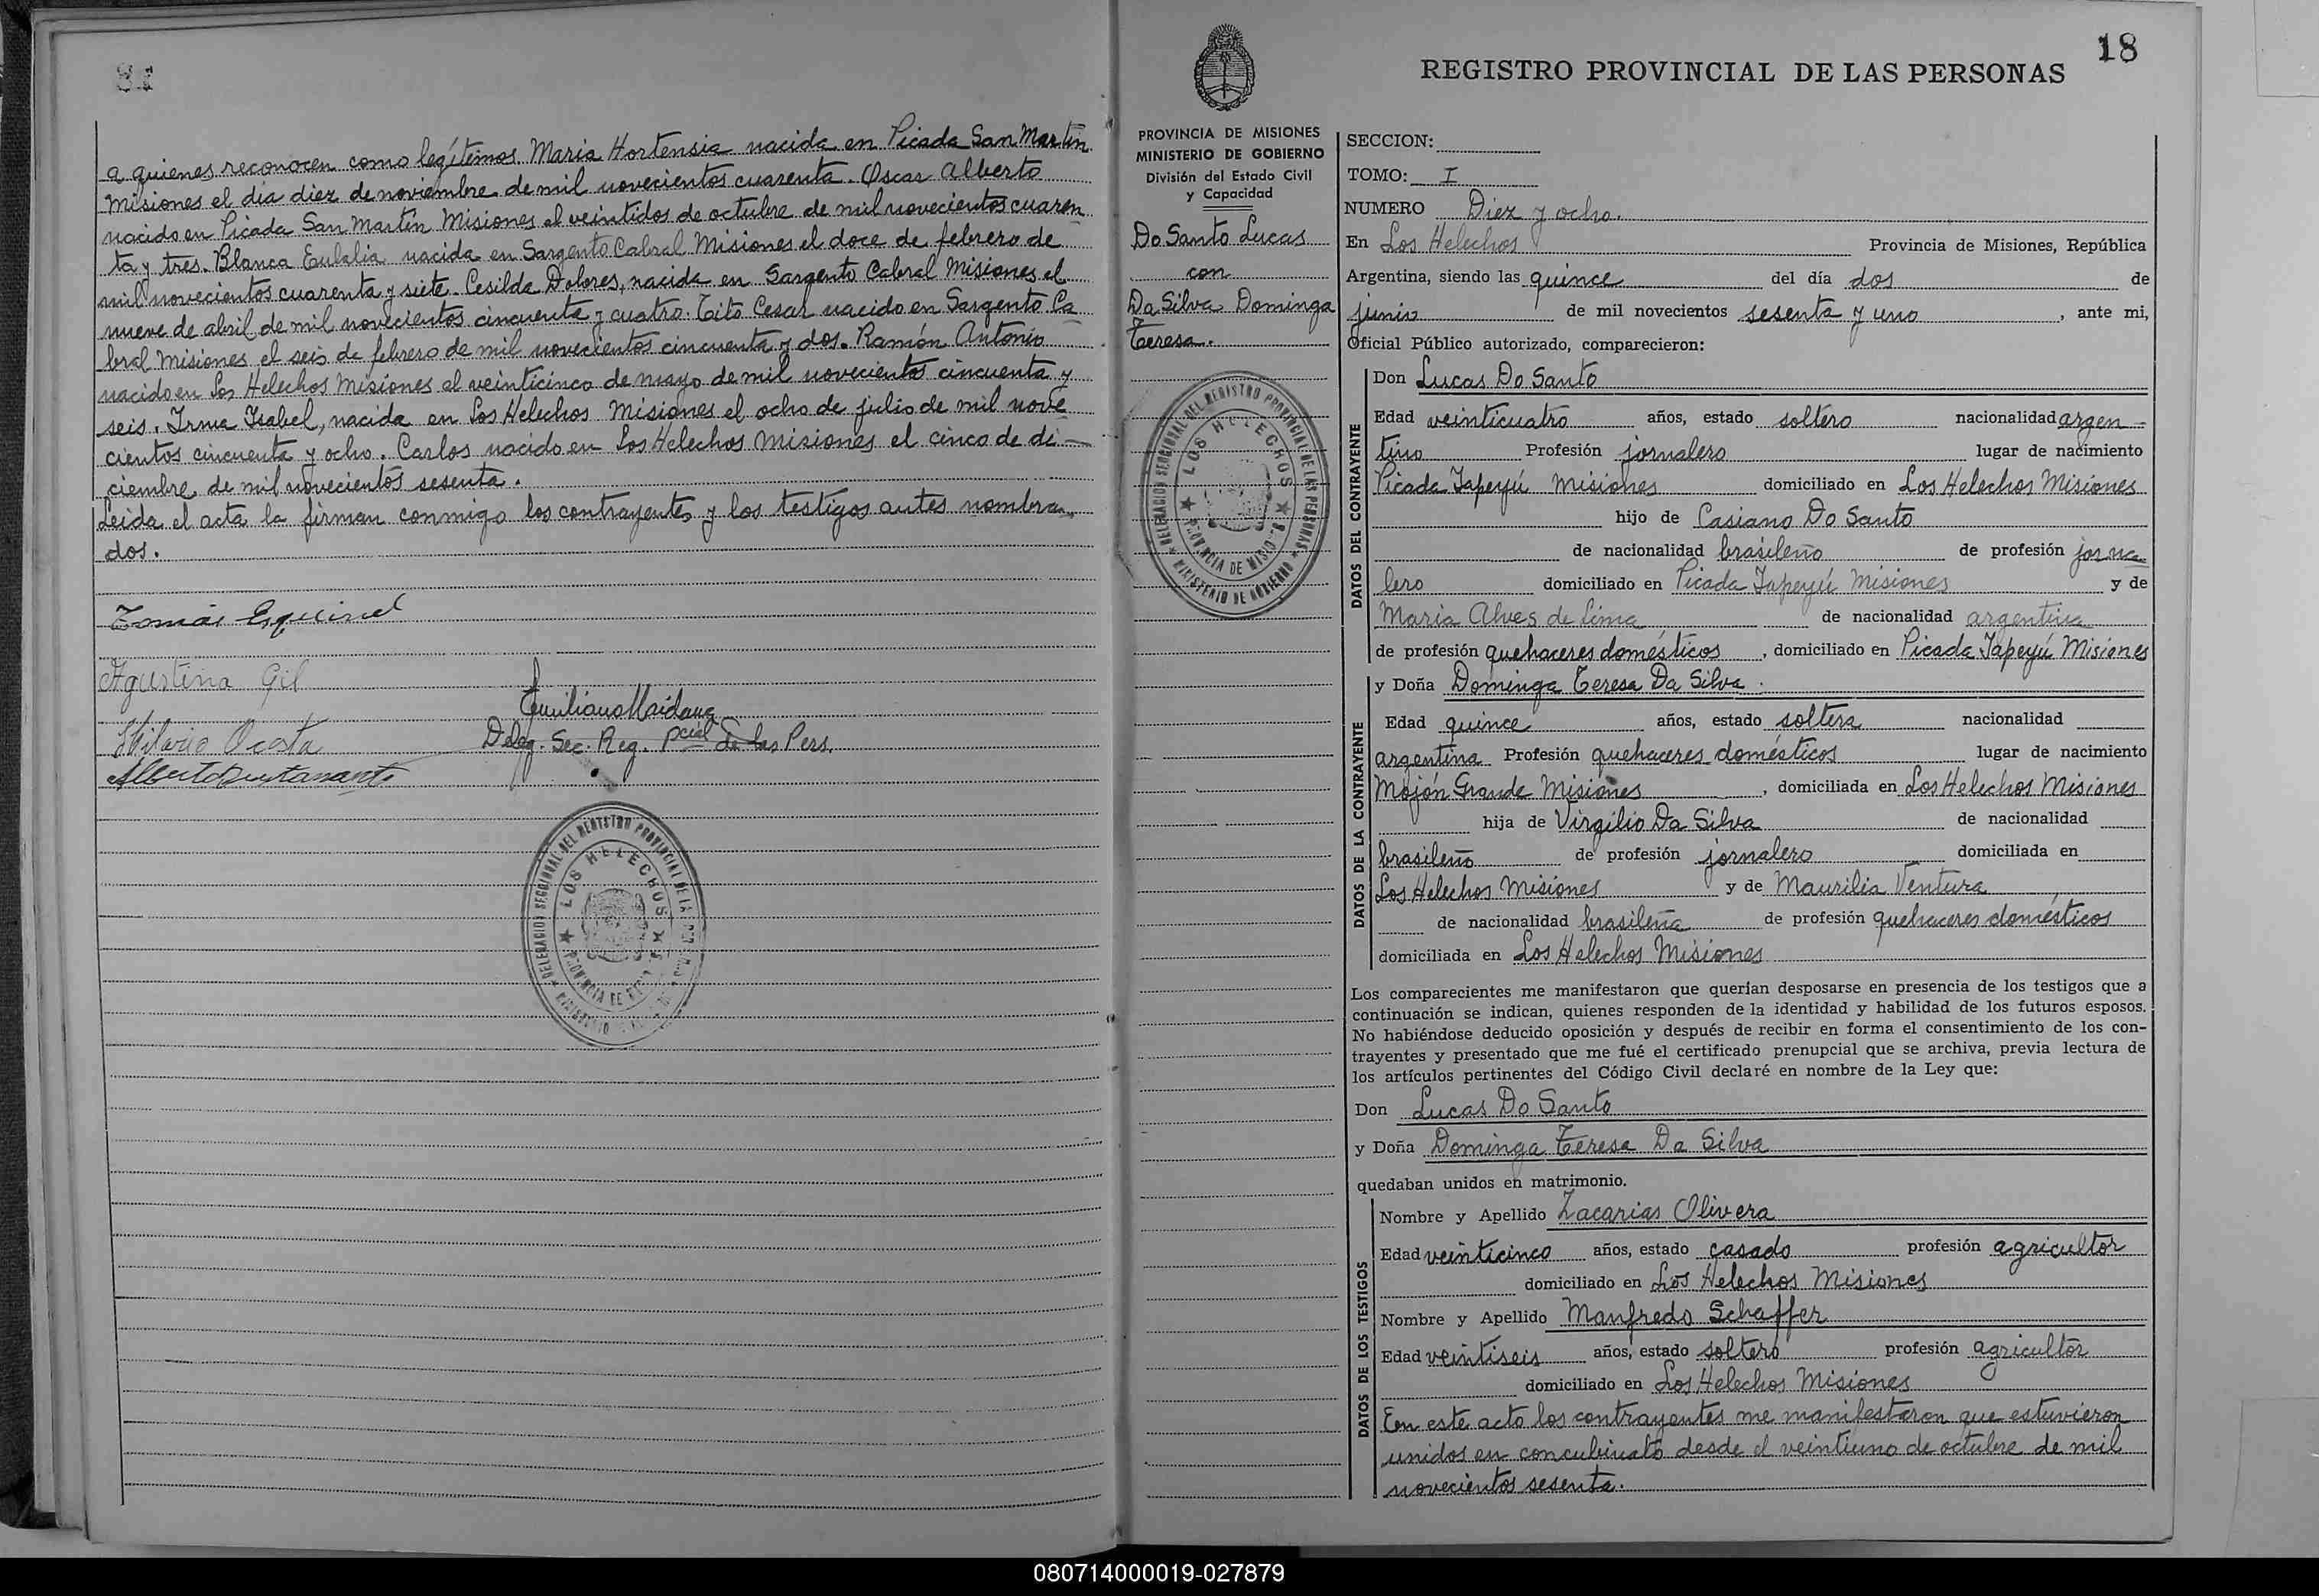 81
a quienes reconocen como legítimos Maria Hortensia nacida en Picada San Martín
Misiones el día diez de noviembre de mil novecientos cuarenta. Oscar Alberto
nacido en Picada San Martín Misiones el veintidos de octubre de mil novecientos cuaren
ta y tres. Blanca Eulalia nacida en Sargento Cabral Misiones el doce de febrero de
mil novecientos cuarenta y siete. Cesilda Dolores, nacida en Sargento Cabral Misiones el
nueve de abril de mil novecientos cincuenta y cuatro. Tito Cesar nacido en Sargento Ca
bral Misiones el seis de febrero de mil novecientos cincuenta y dos. Ramón Antonio
nacido en Los Helechos Misiones el veinticinco de mayo de mil novecientos cincuenta y
seis. Irma Isabel, nacida en Los Helechos Misiones el ocho de julio de mil nove
cientos cincuenta y ocho. Carlos nacido en Los Helechos Misiones el cinco de di-
ciembre de mil novecientos sesenta.
Leida el acta la firman conmigo los contrayentes y los testigos antes nombra
dos.
Tomás Esquivel
Agustina Gil
Emiliano Maidana
Hilario Ocosta
Deleg. Sec. Reg. Pcial de las Pers.
Alberto Bustamante
DELEGACION SECCIONAL DEL REGISTRO PROVINCIAL DE LAS PERSONAS
LOS HELECHOS
PROVINCIA DE MISIONES
MINISTERIO DE GOBIERNO
18
REGISTRO PROVINCIAL DE LAS PERSONAS
PROVINCIA DE MISIONES
MINISTERIO DE GOBIERNO
División del Estado Civil
y Capacidad
Do Santo Lucas
con
Da Silva Dominga
Teresa.
DELEGACION SECCIONAL DEL REGISTRO PROVINCIAL DE LAS PERSONAS
LOS HELECHOS
PROVINCIA DE MISIONES
MINISTERIO DE GOBIERNO
SECCION:
TOMO: I
NUMERO Diez y ocho.
En Los Helechos Provincia de Misiones, República
Argentina, siendo las quince del día dos de
junio de mil novecientos sesenta y uno, ante mi,
Oficial Público autorizado, comparecieron:
DATOS DEL CONTRAYENTE
Don Lucas Do Santo
Edad veinticuatro años, estado soltero nacionalidad argen-
tino Profesión jornalero lugar de nacimiento
Picada Yapeyú Misiones domiciliado en Los Helechos Misiones
hijo de Casiano Do Santo
de nacionalidad brasileño de profesión jorna
lero domiciliado en Picada Yapeyú Misiones y de
Maria Alves de Lima de nacionalidad argentina
de profesión quehaceres domésticos, domiciliado en Picada Yapeyú Misiones
DATOS DE LA CONTRAYENTE
y Doña Dominga Teresa Da Silva.
Edad quince años, estado soltera nacionalidad
argentina Profesión quehaceres domésticos lugar de nacimiento
Mojón Grande Misiones, domiciliada en Los Helechos Misiones
hija de Virgilio Da Silva de nacionalidad
brasileño de profesión jornalero domiciliada en
Los Helechos Misiones y de Maurilia Ventura
de nacionalidad brasileña de profesión quehaceres domésticos
domiciliada en Los Helechos Misiones
Los comparecientes me manifestaron que querían desposarse en presencia de los testigos que a
continuación se indican, quienes responden de la identidad y habilidad de los futuros esposos.
No habiéndose deducido oposición y después de recibir en forma el consentimiento de los con-
trayentes y presentado que me fué el certificado prenupcial que se archiva, previa lectura de
los artículos pertinentes del Código Civil declaré en nombre de la Ley que:
Don Lucas Do Santo
y Doña Dominga Teresa Da Silva
quedaban unidos en matrimonio.
DATOS DE LOS TESTIGOS
Nombre y Apellido Zacarias Olivera
Edad veinticinco años, estado casado profesión agricultor
domiciliado en Los Helechos Misiones
Nombre y Apellido Manfredo Schaffer
Edad veintiseis años, estado soltero profesión agricultor
domiciliado en Los Helechos Misiones
En este acto los contrayentes me manifestaron que estuvieron
unidos en concubinato desde el veintiuno de octubre de mil
novecientos sesenta.
080714000019-027879